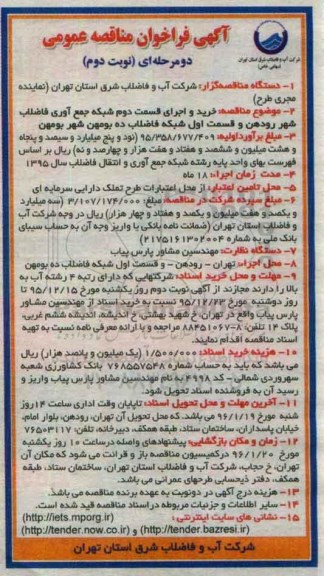 آگهی فراخوان مناقصه عمومی
دومرحله‌ای (نوبت دوم)
شرکت آب و فاضلاب شرق استان تهران
(سهامی خاص)
۱- دستگاه مناقصه‌گزار: شرکت آب و فاضلاب شرق استان تهران (نماینده
مجری طرح)
۲- موضوع مناقصه: خرید و اجرای قسمت دوم شبکه جمع آوری فاضلاب
شهر رودهن و قسمت اول شبکه فاضلاب ده بومهن شهر بومهن
۳- مبلغ برآورداولیه: ۹۵/۳۵۸/۶۷۷/۴۰۹ (نود و پنج میلیارد و سیصد و پنجاه
و هشت میلیون و ششصد و هفتاد و هفت هزار و چهارصد و نه) ریال بر اساس
فهرست بهای واحد پایه رشته شبکه جمع آوری و انتقال فاضلاب سال ۱۳۹۵
۴- مدت زمان اجرا: ۱۸ ماه
۵- محل تامین اعتبار: از محل اعتبارات طرح تملک دارایی سرمایه ای
۶- مبلغ سپرده شرکت در مناقصه: مبلغ ۳/۱۰۷/۱۷۴/۰۰۰ (سه میلیارد
و یکصد و هفت میلیون و یکصد و هفتاد و چهار هزار) ریال در وجه شرکت آب
و فاضلاب استان تهران (ضمانت نامه بانکی یا واریز وجه آن به حساب سیبای
بانک ملی به شماره ۲۱۷۵۱۶۱۳۰۲۰۰۴)
۷- دستگاه نظارت: مهندسین مشاور پارس پیاب
۸- محل اجرا: تهران - رودهن - و قسمت اول شبکه فاضلاب ده بومهن
۹- مهلت و محل خرید اسناد: شرکتهایی که دارای رتبه ۴ رشته آب به
بالا را دارند مجازند از آگهی نوبت دوم روز یکشنبه مورخ ۹۵/۱۲/۱۵ تا
روز دوشنبه مورخ ۹۵/۱۲/۲۳ نسبت به خرید اسناد از مهندسین مشاور
پارس پیاب واقع در تهران، خ شهید بهشتی، خ اندیشه، اندیشه ششم غربی،
پلاک ۱۴ تلفن: ۸-۸۸۴۵۱۰۶۷ مراجعه و با ارائه معرفی نامه نسبت به تهیه
اسناد مناقصه اقدام نمایند.
۱۰- هزینه خرید اسناد: ۱/۵۰۰/۰۰۰ (یک میلیون و پانصد هزار) ریال
می باشد که باید به حساب شماره ۷۶۸۵۵۷۵۴۸ بانک کشاورزی شعبه
سهروردی شمالی - کد ۴۹۹۸ به نام مهندسین مشاور پارس پیاب واریز و
رسید آن به فروشنده اسناد تحویل شود.
۱۱- آخرین مهلت و محل تحویل اسناد: تاپایان وقت اداری ساعت ۱۴ روز
شنبه مورخ ۹۶/۱/۱۹ می باشد. که محل تحویل آن تهران، رودهن، بلوار امام،
خیابان پاسداران، ساختمان ستاد، طبقه همکف، دبیرخانه، تلفن: ۷۶۵۰۳۱۱۷
۱۲- زمان و مکان بازگشایی: پیشنهادهای واصله درساعت ۱۰ روز یکشنبه
مورخ ۹۶/۱/۲۰ درکمیسیون مناقصه باز و قرائت می شود که مکان آن
تهران، خ حجاب، شرکت آب و فاضلاب استان تهران، ساختمان ستاد، طبقه
همکف، دفتر ذیحسابی طرحهای عمرانی می باشد.
۱۳- هزینه درج آگهی در دونوبت به عهده برنده مناقصه می باشد.
۱۴- سایر اطلاعات و جزئیات مربوطه دراسناد مناقصه قید شده است.
۱۵- نشانی های سایت اینترنتی: (http://iets.mporg.ir)
(http://tender.bazresi.ir) و (http://tender.now.co.ir)
شرکت آب و فاضلاب شرق استان تهران